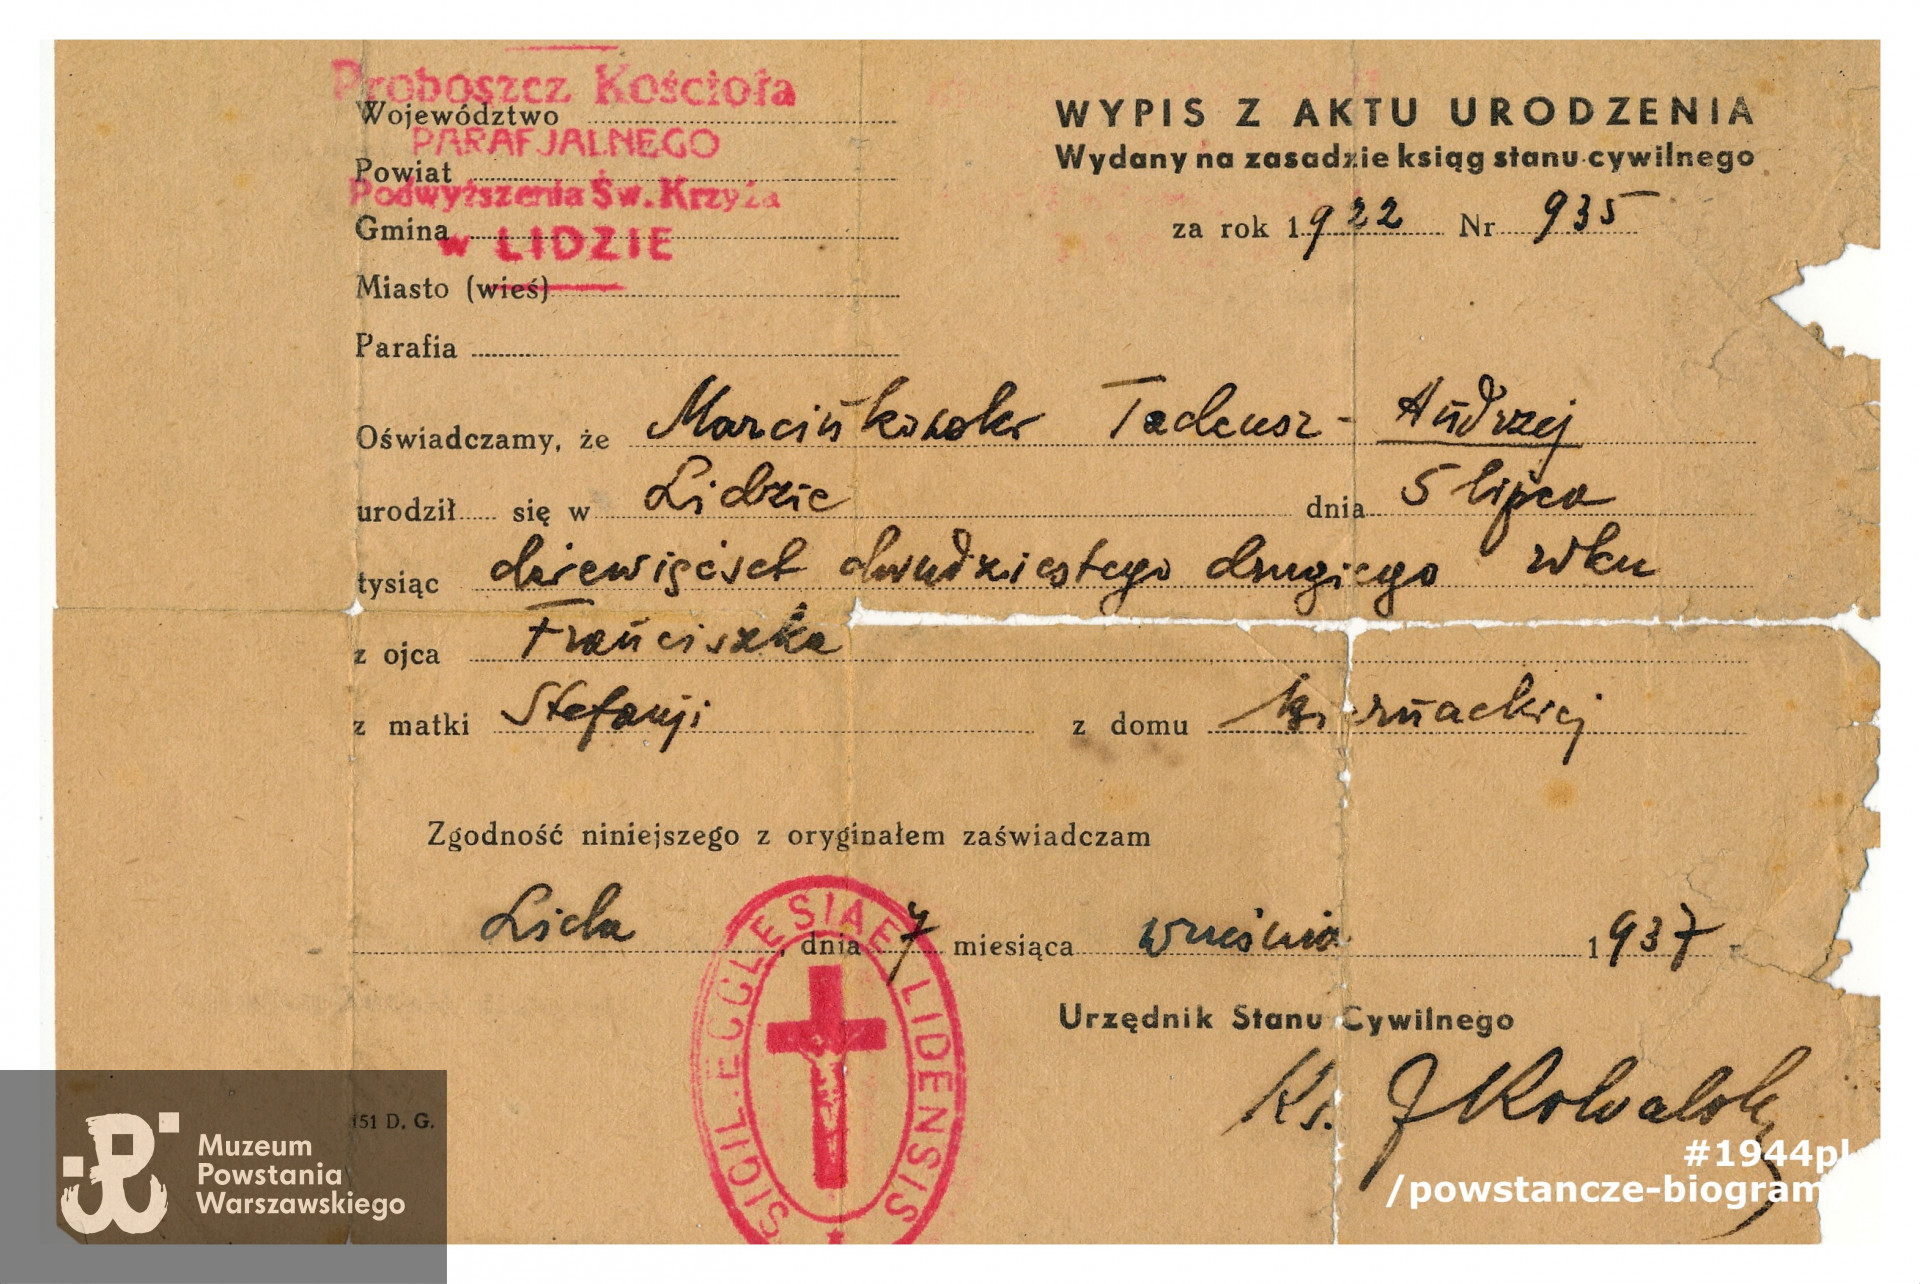 Proboszcz Kościoła
PARAFJALNEGO
Podwyższenia Św. Krzyża
w LIDZIE
Województwo
Powiat
Gmina
Miasto (wieś)
Parafia
WYPIS Z AKTU URODZENIA
Wydany na zasadzie ksiąg stanu cywilnego
za rok 1922 Nr 935
Oświadczamy, że Marcinkowski Tadeusz - Andrzej
urodził się w Lidzie dnia 5 lipca
tysiąc dziewięćset dwudziestego drugiego roku
z ojca Franciszka
z matki Stefanji z domu Biernackiej
Zgodność niniejszego z oryginałem zaświadczam
Lida, dnia 7 miesiąca września 1937
Urzędnik Stanu Cywilnego
Ks. J Kowalski
SIGIL. ECCLESIAE LIDENSIS
151 D. G.
Muzeum
Powstania
Warszawskiego
#1944pl
/powstancze-biogram